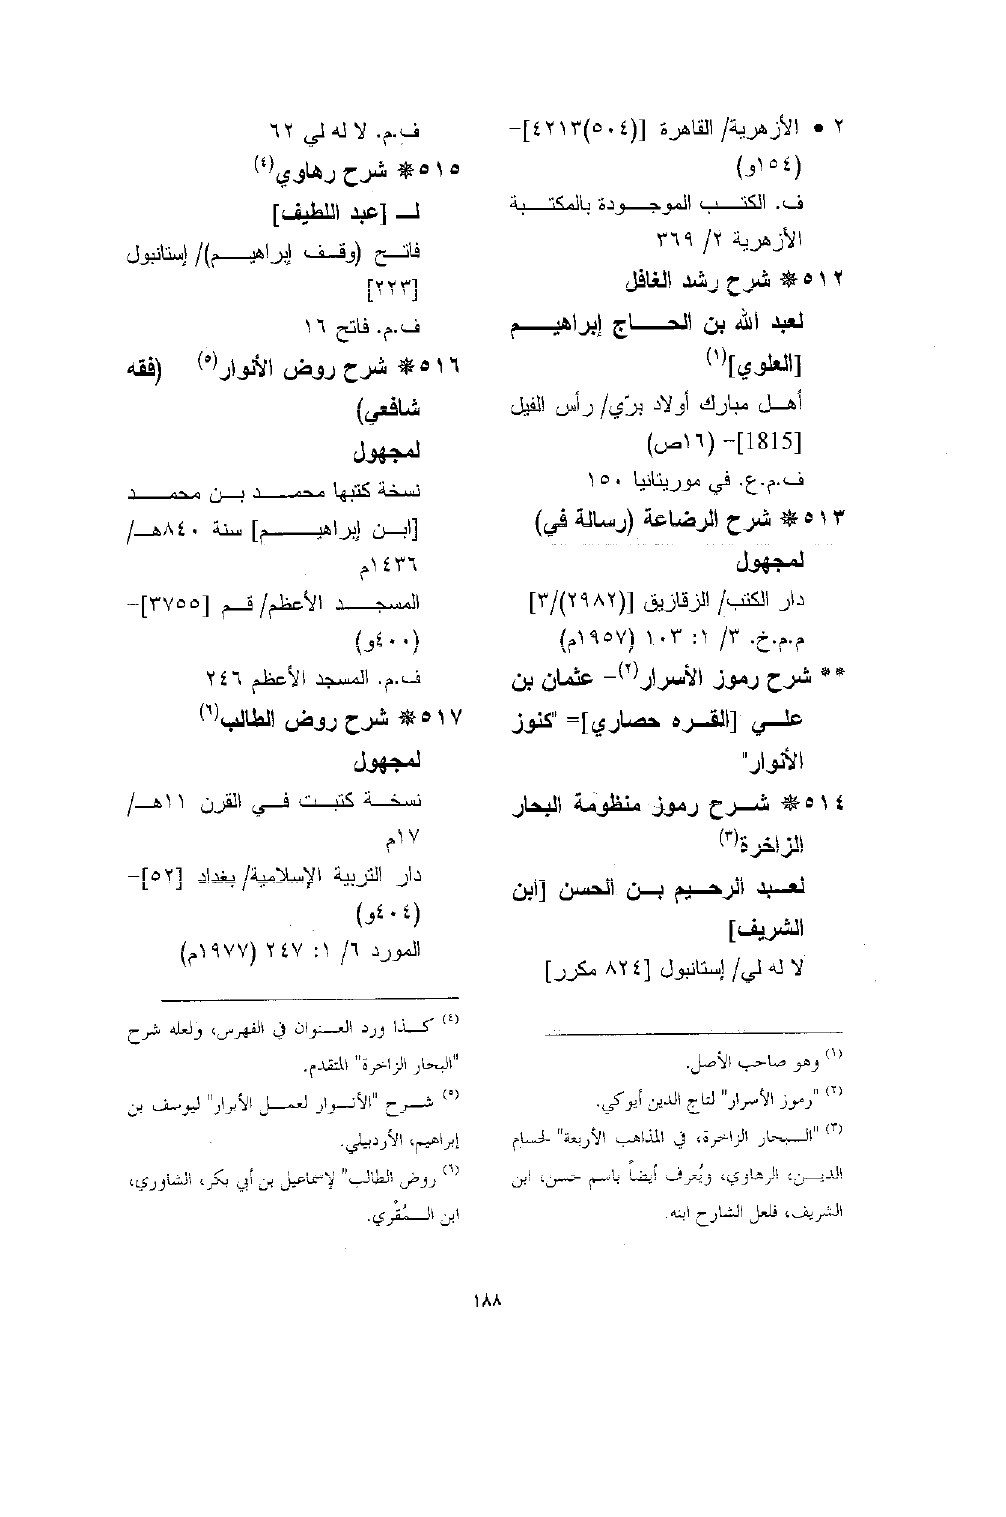 ٢ • الأزهرية/ القاهرة [(٥٠٤)٤٢١٣]–
(١٥٤و)
ف. الكتب الموجودة بالمكتبة
الأزهرية ٢/ ٣٦٩
٥١٢* شرح رشد الغافل
لعبد الله بن الحاج إبراهيم
[العلوي](١)
أهل مبارك أولاد برّي/ رأس الفيل
[1815]– (١٦ص)
ف.م.ع. في موريتانيا ١٥٠
٥١٣* شرح الرضاعة (رسالة في)
لمجهول
دار الكتب/ الزقازيق [(٢٩٨٢)/٣]
م.م.خ. ٣/ ١: ١٠٣ (١٩٥٧م)
** شرح رموز الأسرار(٢)– عثمان بن
علي [القره حصاري]= "كنوز
الأنوار"
٥١٤* شرح رموز منظومة البحار
الزاخرة(٣)
لعبد الرحيم بن الحسن [ابن
الشريف]
لا له لي/ إستانبول [٨٢٤ مكرر]
(١) وهو صاحب الأصل.
(٢) "رموز الأسرار" لتاج الدين أيوكي.
(٣) "البحار الزاخرة، في المذاهب الأربعة" لحسام
الدين، الرهاوي، ويُعرف أيضاً باسم حسن، ابن
الشريف، فلعل الشارح ابنه.
ف.م. لا له لي ٦٢
٥١٥* شرح رهاوي(٤)
لـ [عبد اللطيف]
فاتح (وقف إبراهيم)/ إستانبول
[٢٢٣]
ف.م. فاتح ١٦
٥١٦* شرح روض الأنوار(٥) (فقه
شافعي)
لمجهول
نسخة كتبها محمد بن محمد
[ابن إبراهيم] سنة ٨٤٠هـ/
١٤٣٦م
المسجد الأعظم/ قم [٣٧٥٥]–
(٤٠٠و)
ف.م. المسجد الأعظم ٢٤٦
٥١٧* شرح روض الطالب(٦)
لمجهول
نسخة كتبت في القرن ١١هـ/
١٧م
دار التربية الإسلامية/ بغداد [٥٢]–
(٤٠٤و)
المورد ٦/ ١: ٢٤٧ (١٩٧٧م)
(٤) كذا ورد العنوان في الفهرس، ولعله شرح
"البحار الزاخرة" المتقدم.
(٥) شرح "الأنوار لعمل الأبرار" ليوسف بن
إبراهيم، الأردبيلي.
(٦) روض الطالب" لإسماعيل بن أبي بكر، الشاوري،
ابن المُقْري.
١٨٨